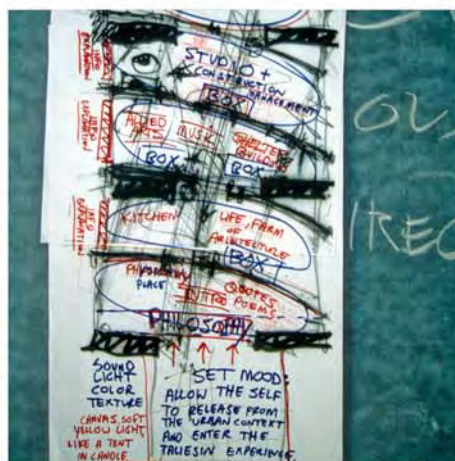 INFO
EXPLANATION
STUDIO +
CONSTRUCTION
MANAGEMENT
BOX
INFO
EXPLANATION
ALLIED
ARTS
MUSIC
SHELTER
BUILDING
BOX
BOX
INFO
EXPLANATION
KITCHEN
LIFE, FARM
OF ARCHITECTURE
BOX
PLACE
INTRO
QUOTES
POEMS
PHILOSOPHY
SOUND
LIGHT
COLOR
TEXTURE
CANVAS, SOFT
YELLOW LIGHT,
LIKE A TENT
IN CANDLE
SET MOOD:
ALLOW THE SELF
TO RELEASE FROM
THE URBAN CONTEXT
AND ENTER THE
TALIESIN EXPERIENCE.